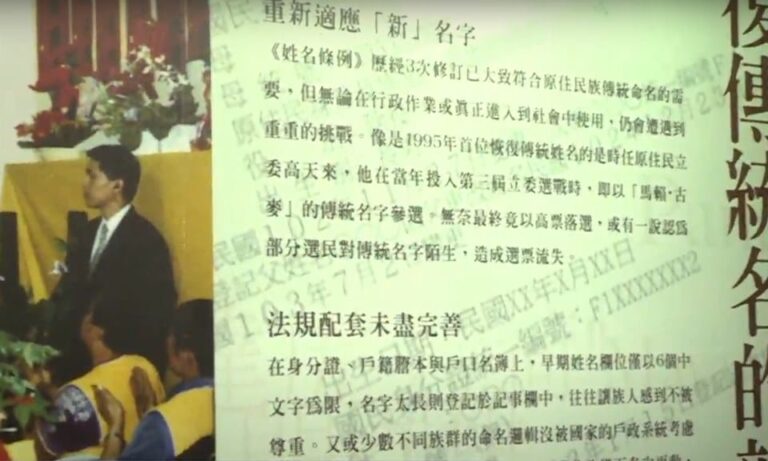 重新適應「新」名字
《姓名條例》歷經3次修訂已大致符合原住民族傳統命名的需
要，但無論在行政作業或真正進入到社會中使用，仍會遭遇到
重重的挑戰。像是1995年首位恢復傳統姓名的是時任原住民立
委高天來，他在當年投入第三屆立委選戰時，即以「馬賴·古
麥」的傳統名字參選。無奈最終竟以高票落選，或有一說認為
部分選民對傳統名字陌生，造成選票流失。
法規配套未盡完善
在身分證、戶籍謄本與戶口名簿上，早期姓名欄位僅以6個中
文字為限，名字太長則登記於記事欄中，往往讓族人感到不被
尊重。又或少數不同族群的命名邏輯沒被國家的戶政系統考慮
復傳統名的
民國XX年X月XX日
統一編號：F1XXXXXXX2